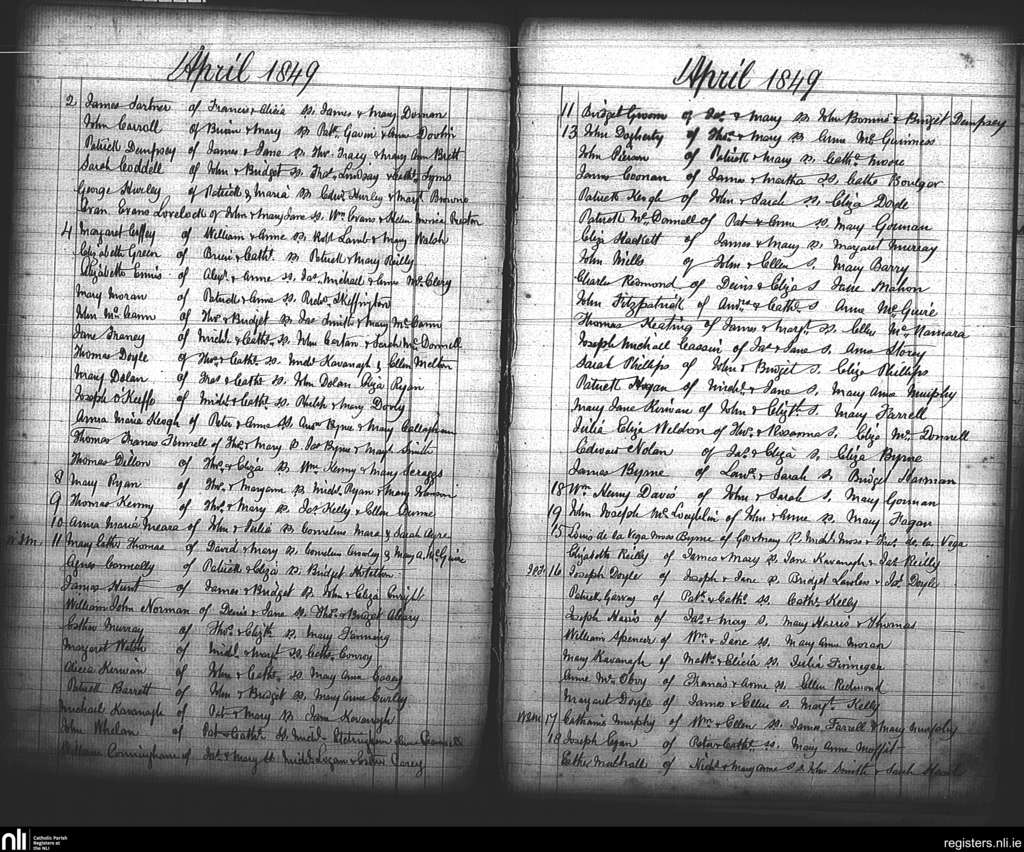 April 1849
2 James Sartner of Francis & Alicia ss. James & Mary Doman
John Carroll of Brian & Mary ss Patk. Gavin & Anne
Patrick Dempsey of James & Jane ss Thos. Tracy & Mary Ann Brett
Sarah Coddell of John & Bridget ss. Fras. Lindsay & Cathe. Lyms
George Hurley of Patrick & Maria ss Edwd. Hurley & Margt. Browne
Evans Lovelock of John & Mary Jane ss. Wm. Evans & Helen Preston
4 Margaret Caffey of William & Anne ss. Robt Lamb & Mary Walsh
Elizabeth Green of Brien & Cathe. ss Patrick & Mary Reilly
Elizabeth Ennis of Alexr. & Anne ss. Jas. Michael & Anne McClery
Mary Moran of Patrick & Anne ss. Skiffington
John McCann of Thos & Bridget ss Jas Smith & Mary McCann
Jane of Michl. & Cathe. ss. John Carlan & Sarah McDonnell
Thomas Doyle of Thos. & Cathe. ss. Michl Kavanagh & Ellen Melton
Mary Dolan of Fras & Cathe ss. John Dolan Eliza Ryan
Joseph O'Keeffe of Michl & Cathe. ss. Philip & Mary Doorly
Anna Maria Keogh of Peter & Anne ss. Byrne & Mary Callaghan
Thomas Francis of Thos. & Mary ss Jas Byrne & Margt Smith
Thomas Dillon of Thos. & Eliza ss. Wm. Kenny & Mary Scraggs
8 Mary Ryan of Thos. & Maryanne ss Michl. Ryan & Mary
9 Thomas Kenny of Thos. & Mary ss. Jas Kelly & Ellen
10 Anna Maria Meara of John & Julia ss Cornelius Mara & Sarah Ayre
11 Mary Esther Thomas of David & Mary ss Cornelius Crowley & Mary A. McGuire
Agnes Connolly of Patrick & Eliza ss Bridget
James Hunt of James & Bridget ss John & Eliza Enright
William John Norman of Denis & Jane ss Thos. & Bridget Cleary
Esther Murray of Thos. & Elizth ss Mary Fanning
Margaret Walsh of Michl & Margt ss Cathe. Conroy
Alicia Kerwan of John & Cathe. ss Mary Ann Casey
Patrick Barrett of John & Bridget ss. Mary Anne Curley
Michael Kavanagh of Pat & Mary ss Jane Kavanagh
John Whelan of Pat & Cathe. ss Michl.
William Cunningham of Jas. & Mary ss Michl. Logan & Esther Carey
April 1849
11 Bridget Groom of Jas. & Mary ss John Bonnis & Bridget Dempsey
13 John Dogherty of Thos. & Mary ss Anne McGuinness
John Pieran of Patrick & Mary ss. Cathe. Moore
James Coonan of James & Martha ss. Cathe Boulger
Patrick Keogh of John & Sarah ss. Eliza Doyle
Patrick McDonnell of Pat & Anne ss. Mary Gorman
Eliza Hackett of James & Mary ss. Margaret Murray
John Mills of John & Ellen S. Mary Barry
Charles Redmond of Denis & Eliza S Jane Mahon
John Fitzpatrick of Andw & Cathe S Anne McGuire
Thomas Keating of James & Margt. ss. Ellen McNamara
Joseph Michael Cassin of Jas & Jane S. Anne Storey
Sarah Phillips of John & Bridget S. Eliza Phillips
Patrick Hagan of Michl. & Jane S. Mary Anne Murphy
Mary Jane Kirwan of John & Elizth S. Mary Farrell
Julia Eliza Weldon of Thos. & Rosanna S. Eliza McDonnell
Edward Nolan of Jas. & Eliza S. Eliza Byrne
James Byrne of Lawe. & Sarah S. Bridget Harman
18 Wm Henry Davis of John & Sarah S. Mary Gorman
19 John Joseph McLoughlin of John & Anne ss. Mary Fagan
15 Louis de la Vega Moss Byrne of Geo & Mary ss Michl. Moss & Fras. de la Vega
Elizabeth Reilly of James & Mary ss Jane Kavanagh & Jas Reilly
16 Joseph Doyle of Joseph & Jane ss Bridget Lawlor & Jas. Doyle
Patrick Garvey of Patk. & Cathe. ss. Cathe. Kelly
Joseph Harris of Jas. & Mary S. Mary Harris & Thomas
William Spencer of Wm. & Jane ss. Mary Anne Moran
Mary Kavanagh of Matw. & Elicia ss. Julia Finnegan
Anne McOboy of Francis & Anne ss Ellen Redmond
Margaret Doyle of James & Ellen S. Margt. Kelly
17 Catharine Murphy of Wm. & Ellen ss James Farrell & Mary Murphy
18 Joseph Egan of Peter & Cathe. ss. Mary Anne Moffit
Esther Mulhall of Nichs. & Mary Anne ss John Smith & Sarah
nli Catholic Parish Registers at the NLI
registers.nli.ie